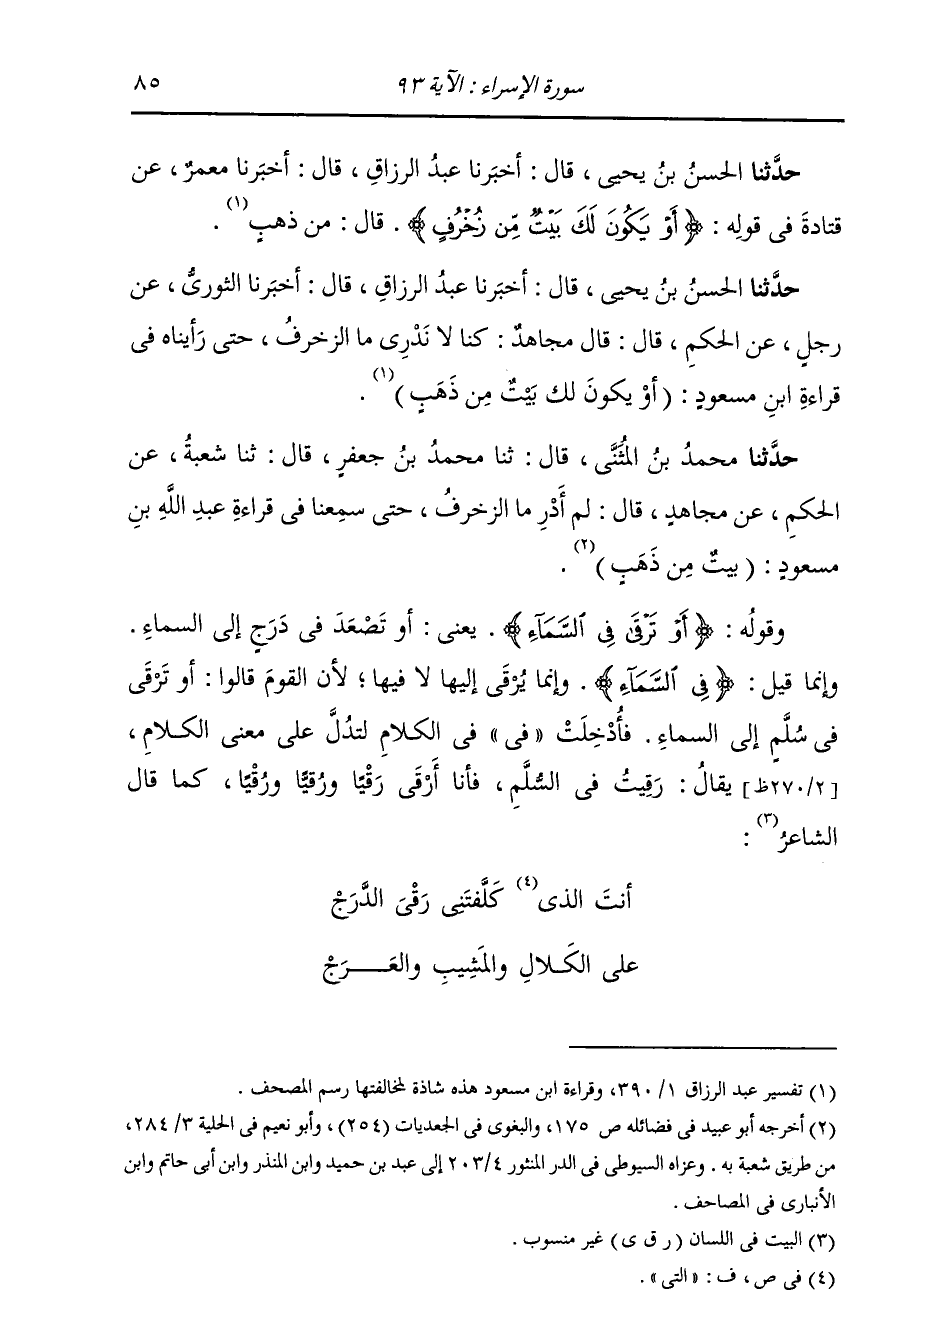 سورة الإسراء : الآية ٩٣
٨٥
حدَّثنا الحسنُ بنُ يحيى ، قال : أخبَرنا عبدُ الرزاقِ ، قال : أخبَرنا معمرٌ ، عن
قتادةَ فى قولِه : ﴿ أَوْ يَكُونَ لَكَ بَيْتٌ مِّن زُخْرُفٍ ﴾ . قال : من ذهبٍ (١) .
حدَّثنا الحسنُ بنُ يحيى ، قال : أخبَرنا عبدُ الرزاقِ ، قال : أخبَرنا الثورىُّ ، عن
رجلٍ ، عن الحكمِ ، قال : قال مجاهدٌ : كنا لا نَدْرِى ما الزخرفُ ، حتى رَأيناه فى
قراءةِ ابنِ مسعودٍ : ( أوْ يكونَ لك بَيْتٌ مِن ذَهَبٍ ) (١) .
حدَّثنا محمدُ بنُ المُثَنَّى ، قال : ثنا محمدُ بنُ جعفرٍ ، قال : ثنا شعبةُ ، عن
الحكمِ ، عن مجاهدٍ ، قال : لم أَدْرِ ما الزخرفُ ، حتى سمِعنا فى قراءةِ عبدِ اللَّهِ بنِ
مسعودٍ : ( بيتٌ مِن ذَهَبٍ ) (٢) .
وقولُه : ﴿ أَوْ تَرْقَىٰ فِى ٱلسَّمَآءِ ﴾ . يعنى : أو تَصْعَدَ فى دَرَجٍ إلى السماءِ .
وإنما قيل : ﴿ فِى ٱلسَّمَآءِ ﴾ . وإنما يُرْقَى إليها لا فيها ؛ لأن القومَ قالوا : أو تَرْقَى
فى سُلَّمٍ إلى السماءِ . فأُدْخِلَتْ « فى » فى الكلامِ لتدُلَّ على معنى الكلامِ ،
[٢/ ٢٧٠ظ] يقالُ : رَقِيتُ فى السُّلَّمِ ، فأنا أَرْقَى رَقْيًا ورُقيًّا ورُقْيًا ، كما قال
الشاعرُ (٣) :
أنتَ الذى (٤) كَلَّفتَنِى رَقْىَ الدَّرَجْ
على الكَلالِ والمَشِيبِ والعَـــرَجْ
(١) تفسير عبد الرزاق ١/ ٣٩٠، وقراءة ابن مسعود هذه شاذة لمخالفتها رسم المصحف .
(٢) أخرجه أبو عبيد فى فضائله ص ١٧٥، والبغوى فى الجعديات (٢٥٤) ، وأبو نعيم فى الحلية ٣/ ٢٨٤،
من طريق شعبة به . وعزاه السيوطى فى الدر المنثور ٢٠٣/٤ إلى عبد بن حميد وابن المنذر وابن أبى حاتم وابن
الأنبارى فى المصاحف .
(٣) البيت فى اللسان ( ر ق ى ) غير منسوب .
(٤) فى ص ، ف : « التى » .